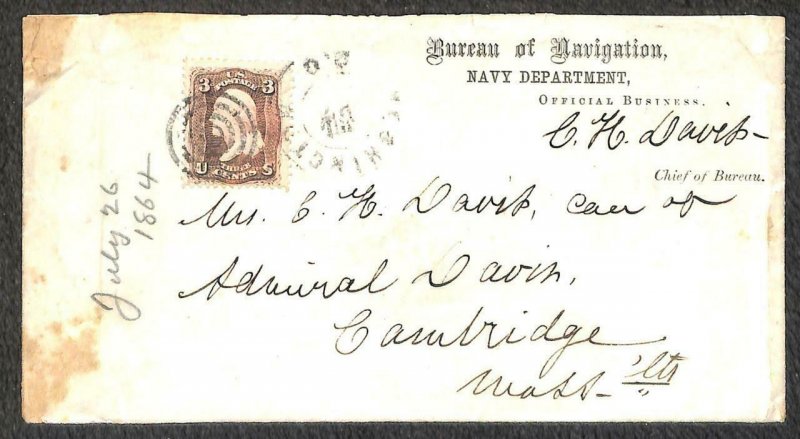 Bureau of Navigation,
NAVY DEPARTMENT,
OFFICIAL BUSINESS.
C. H. Davis
Chief of Bureau.
3 U.S. 3
POSTAGE
U THREE S
CENTS
WASHINGTON D.C.
July 26
1864
Mrs. C. H. Davis, care of
Admiral Davis,
Cambridge
Mass